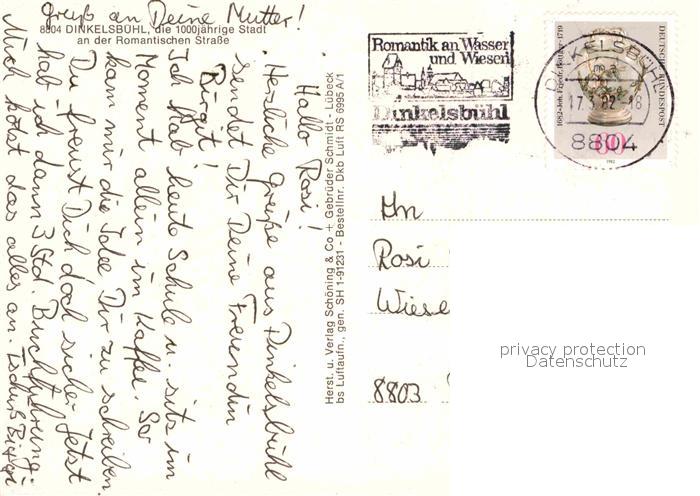 8804 DINKELSBÜHL, die 1000jährige Stadt
an der Romantischen Straße
Hallo Rosi!
Herzliche Grüße aus Dinkelsbühl
sendet Dir Deine Freundin
Birgit!
Ich hab heute Schule u. sitz im
Moment allein im Kaffee. So
kam mir die Idee Dir zu schreiben.
Du freust Dich doch sicher. Jetzt
hab ich dann 3 Std. Buchführung.
Mich kotzt das alles an. Tschüß Birgit
Grüß an Deine Mutter!
Herst. u. Verlag Schöning & Co + Gebrüder Schmidt - Lübeck
bs Luftaufn., gen. SH 1-91231 - Bestellnr. Dkb Luft RS 6995 A/1
Romantik an Wasser
und Wiesen
Dinkelsbühl
DINKELSBÜHL
17.3.82-18
8804
DEUTSCHE BUNDESPOST
60
1982
An
Rosi
Wiese
8803
privacy protection
Datenschutz